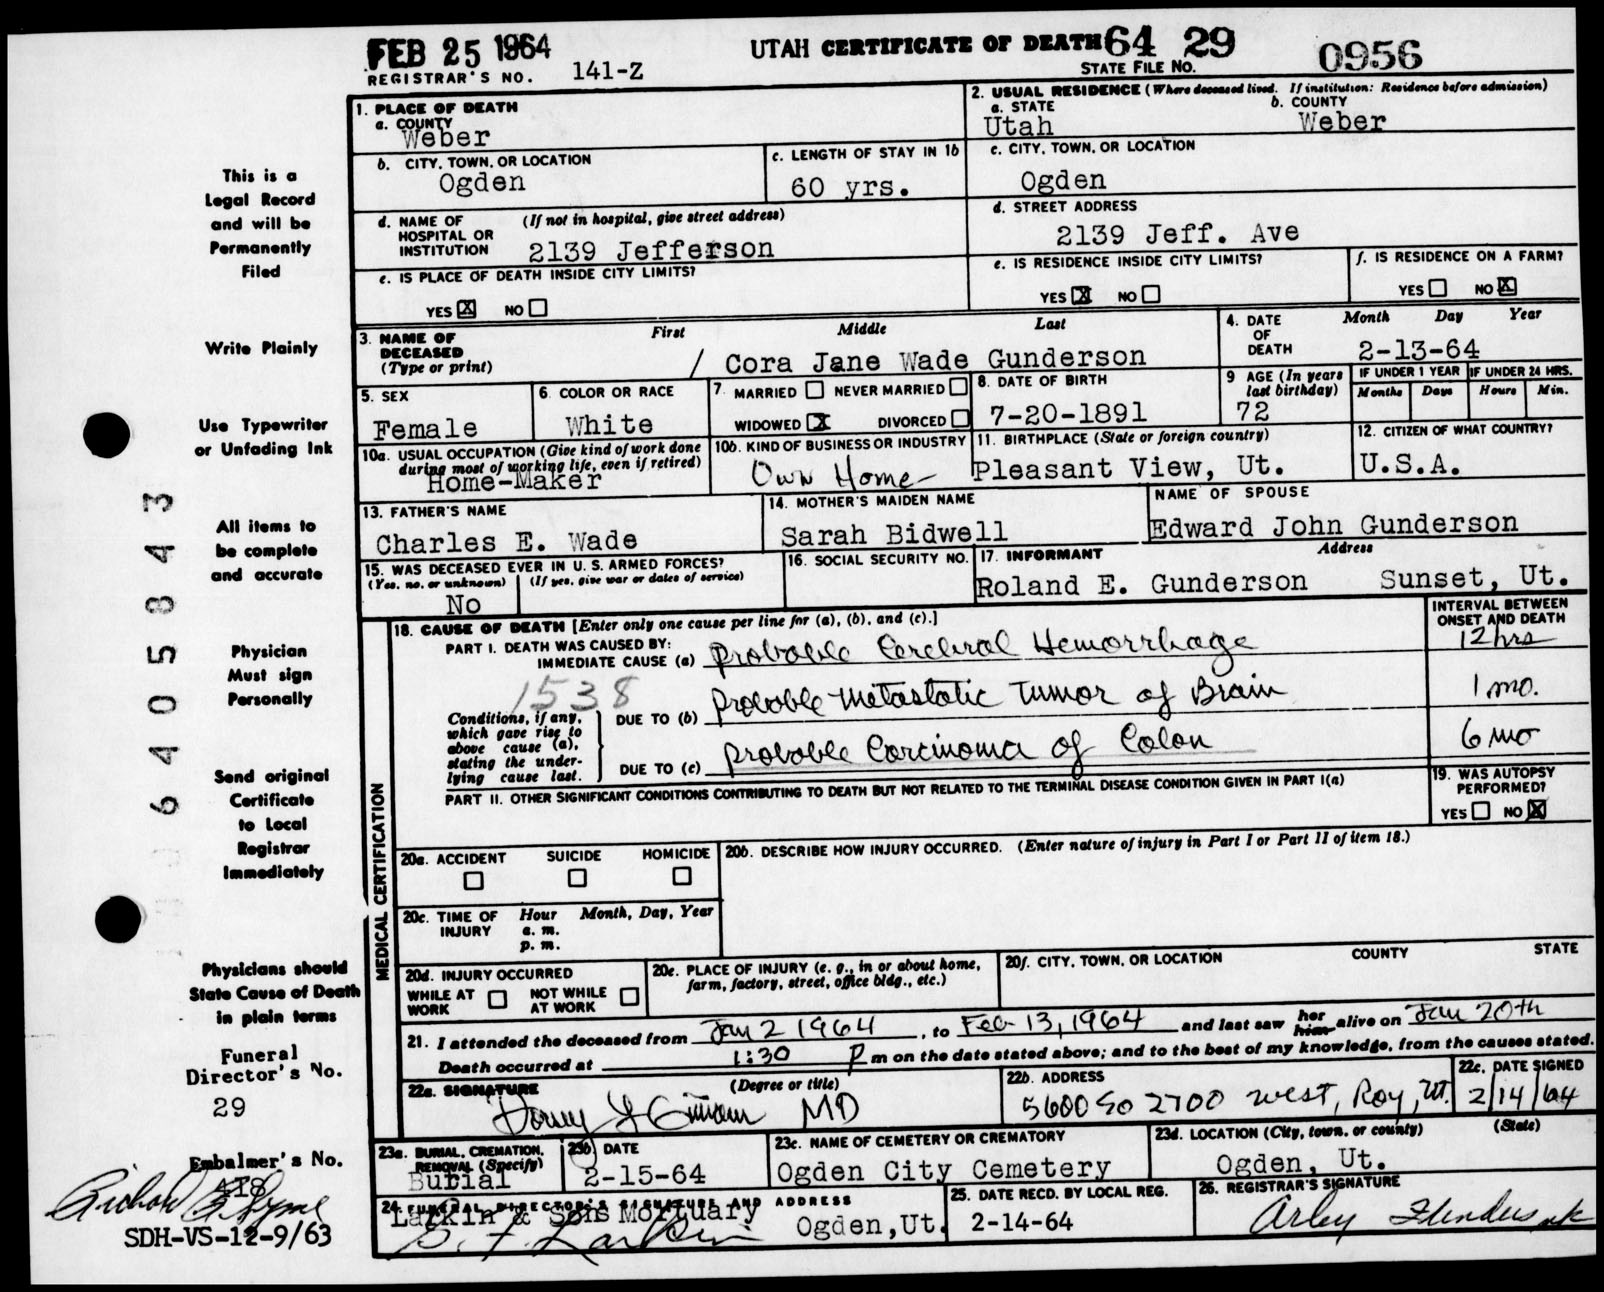 FEB 25 1964
UTAH CERTIFICATE OF DEATH 64 29 0956
REGISTRAR'S NO. 141-Z
STATE FILE NO.
This is a
Legal Record
and will be
Permanently
Filed
Write Plainly
Use Typewriter
or Unfading Ink
All items to
be complete
and accurate
Physician
Must sign
Personally
Send original
Certificate
to Local
Registrar
Immediately
Physicians should
State Cause of Death
in plain terms
Funeral
Director's No.
29
Embalmer's No.
418
SDH-VS-12-9/63
6405843
1. PLACE OF DEATH
a. COUNTY
Weber
2. USUAL RESIDENCE (Where deceased lived. If institution: Residence before admission)
a. STATE
Utah
b. COUNTY
Weber
b. CITY, TOWN, OR LOCATION
Ogden
c. LENGTH OF STAY IN 1b
60 yrs.
c. CITY, TOWN, OR LOCATION
Ogden
d. NAME OF HOSPITAL OR INSTITUTION (If not in hospital, give street address)
2139 Jefferson
d. STREET ADDRESS
2139 Jeff. Ave
e. IS PLACE OF DEATH INSIDE CITY LIMITS?
YES X NO
e. IS RESIDENCE INSIDE CITY LIMITS?
YES X NO
f. IS RESIDENCE ON A FARM?
YES NO X
3. NAME OF DECEASED (Type or print)
First Middle Last
/ Cora Jane Wade Gunderson
4. DATE OF DEATH
Month Day Year
2-13-64
5. SEX
Female
6. COLOR OR RACE
White
7. MARRIED NEVER MARRIED
WIDOWED X DIVORCED
8. DATE OF BIRTH
7-20-1891
9 AGE (In years last birthday)
72
IF UNDER 1 YEAR
Months Days
IF UNDER 24 HRS.
Hours Min.
10a. USUAL OCCUPATION (Give kind of work done during most of working life, even if retired)
Home-Maker
10b. KIND OF BUSINESS OR INDUSTRY
Own Home
11. BIRTHPLACE (State or foreign country)
Pleasant View, Ut.
12. CITIZEN OF WHAT COUNTRY?
U.S.A.
13. FATHER'S NAME
Charles E. Wade
14. MOTHER'S MAIDEN NAME
Sarah Bidwell
NAME OF SPOUSE
Edward John Gunderson
15. WAS DECEASED EVER IN U. S. ARMED FORCES?
(Yes, no, or unknown) (If yes, give war or dates of service)
No
16. SOCIAL SECURITY NO.
17. INFORMANT Address
Roland E. Gunderson Sunset, Ut.
MEDICAL CERTIFICATION
18. CAUSE OF DEATH [Enter only one cause per line for (a), (b), and (c).]
INTERVAL BETWEEN ONSET AND DEATH
PART I. DEATH WAS CAUSED BY:
IMMEDIATE CAUSE (a) Probable Cerebral Hemorrhage 12 hrs
1538
Conditions, if any, which gave rise to above cause (a), stating the underlying cause last.
DUE TO (b) Probable Metastatic Tumor of Brain 1 mo.
DUE TO (c) Probable Carcinoma of Colon 6 mo
PART II. OTHER SIGNIFICANT CONDITIONS CONTRIBUTING TO DEATH BUT NOT RELATED TO THE TERMINAL DISEASE CONDITION GIVEN IN PART I(a)
19. WAS AUTOPSY PERFORMED?
YES NO X
20a. ACCIDENT SUICIDE HOMICIDE
20b. DESCRIBE HOW INJURY OCCURRED. (Enter nature of injury in Part I or Part II of item 18.)
20c. TIME OF INJURY
Hour Month, Day, Year
a. m.
p. m.
20d. INJURY OCCURRED
WHILE AT WORK NOT WHILE AT WORK
20e. PLACE OF INJURY (e. g., in or about home, farm, factory, street, office bldg., etc.)
20f. CITY, TOWN, OR LOCATION COUNTY STATE
21. I attended the deceased from Jan 2 1964, to Feb 13, 1964 and last saw her him alive on Jan 20th
Death occurred at 1:30 P m on the date stated above; and to the best of my knowledge, from the causes stated.
22a. SIGNATURE (Degree or title)
MD
22b. ADDRESS
5600 So 2700 West, Roy, Ut.
22c. DATE SIGNED
2/14/64
23a. BURIAL, CREMATION, REMOVAL (Specify)
Burial
23b DATE
2-15-64
23c. NAME OF CEMETERY OR CREMATORY
Ogden City Cemetery
23d. LOCATION (City, town, or county) (State)
Ogden, Ut.
24. FUNERAL DIRECTOR'S SIGNATURE AND ADDRESS
Larkin & Sons Mortuary Ogden,Ut.
25. DATE RECD. BY LOCAL REG.
2-14-64
26. REGISTRAR'S SIGNATURE